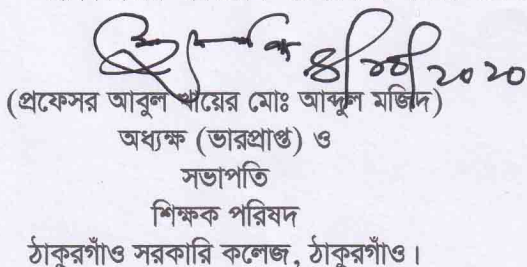 ২০২০
(প্রফেসর আবুল খায়ের মোঃ আব্দুল মজিদ)
অধ্যক্ষ (ভারপ্রাপ্ত) ও
সভাপতি
শিক্ষক পরিষদ
ঠাকুরগাঁও সরকারি কলেজ, ঠাকুরগাঁও।